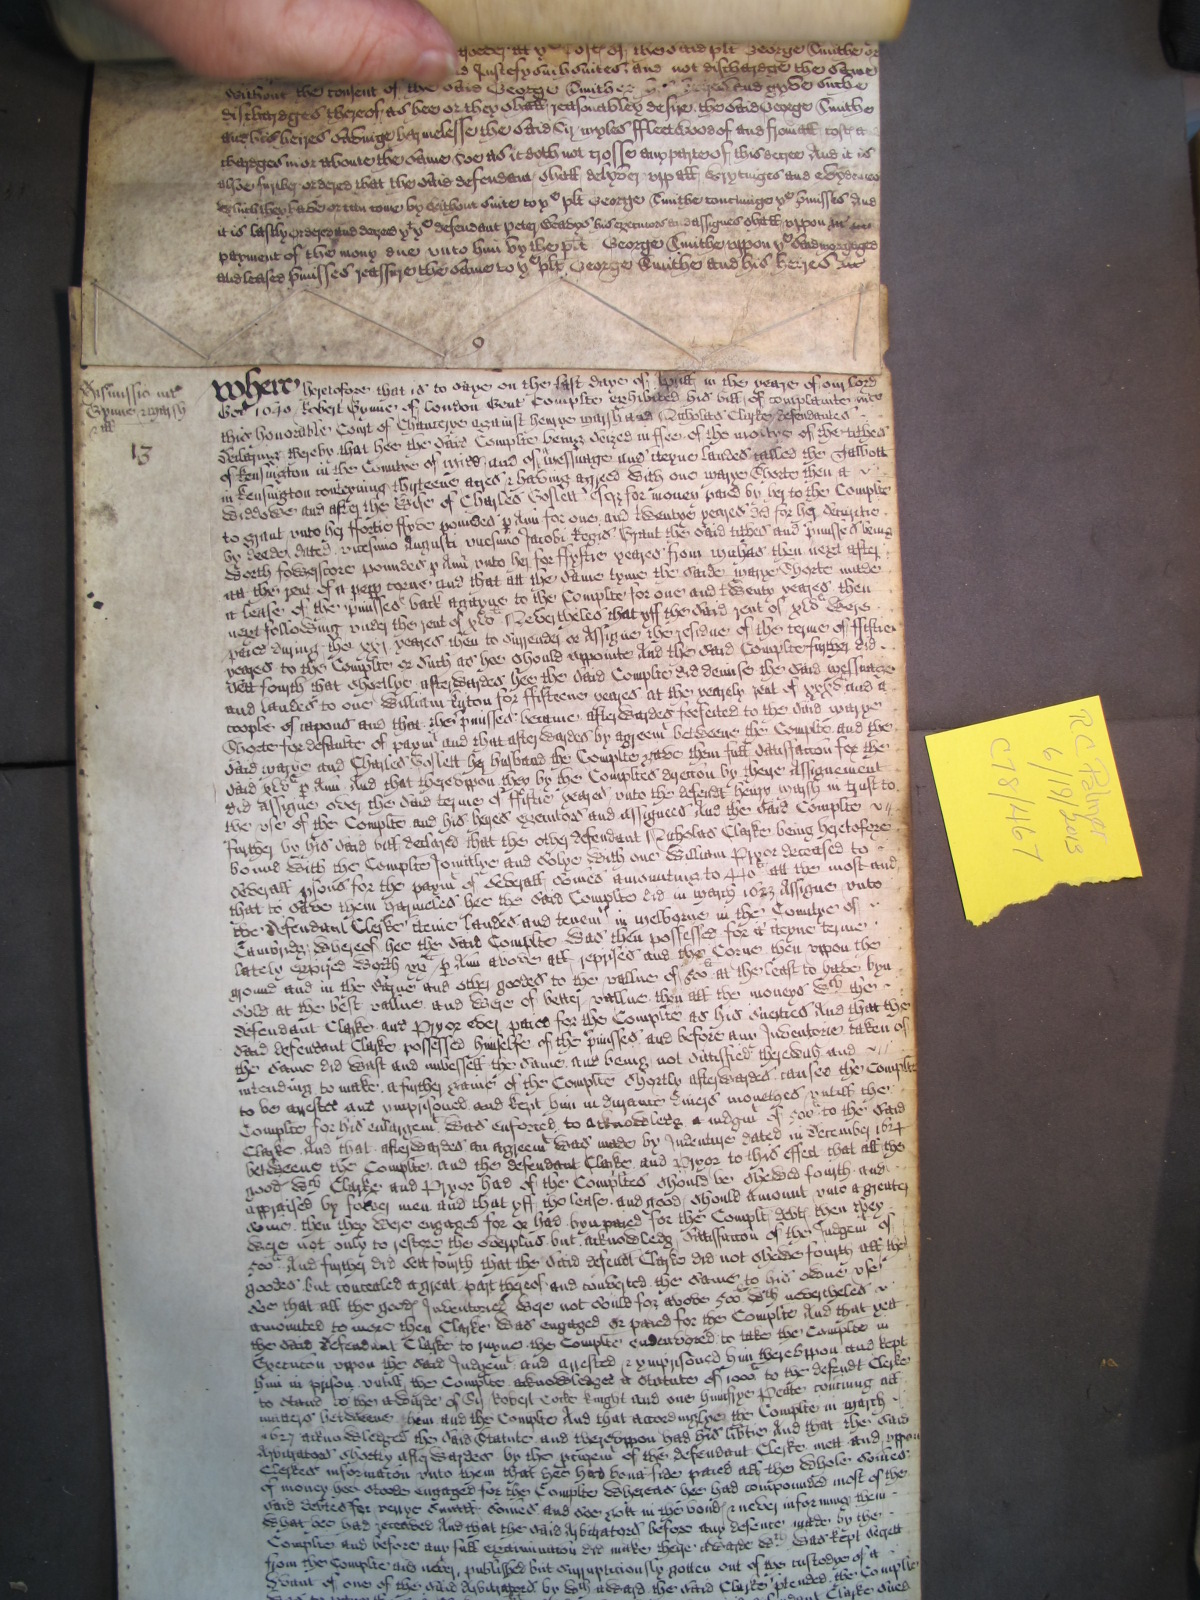 at ye Cost of the said plt George Smithe or
Justefy such suites and not dischardge the same
without the consent of the said George Smither and gyve suche
dischardges thereof as hee or they shall reasonabley desire the said George Smithe
and his heires savinge harmelesse the said Sr myles ffleetwood of and from all cost
chardges in or aboute the same soe as it doth not crosse any parte of this decree And it is
alsoe further ordered that the said defendant shall delyver upp all wrytinges and evydences
which they have or can come by without suite to ye plt George Smithe concerninge ye pmisses And
it is lastly ordered and decreed yt ye defendant peter his executors and assignes shall uppon
payment of the mony due unto him by the plt George Smithe uppon ye said morgaged
and leased pmisses reassure the same to ye plt George Smithe and his heires
Dismissio int
Gynne & Marsh
& al
13
Where heretofore that is to saye on the last daye of Aprill in the yeare of our Lord
God 1630 Robert Gynne of London Gent Complte exhibited his bill of complainte into
this honorable Court of Chancerye against henrye marsh and Nicholas Clarke defendantes
declaring thereby that hee the said Complte being seized in ffee of the moitye of the tithes
of Kensington in the Countye of midd and of messuage and certeyne landes called the Talbott
in Kensington conteyning thirteene acres & having agreed with one marye Shorte then a
Widdowe and after the Wife of Charles Goslett Esqr for money paied by her to the Complte
to grant unto her ffortie ffyve poundes p Ann for one and twentye yeares did for her securitie
by deede dated vicesimo Augusti vicesimo Jacobi Regis Grant the said tithes and pmisses being
worth fowerscore poundes p Ann unto her for ffyftie yeares from michas then next after
att the rent of a pepp corne and that att the same tyme the saide marye Shorte made
a lease of the pmisses back againe to the Complte for one and twenty yeares then
next following under the rent of xlvli Neverthelesse that yff the said rent of xlvli were
paied during the xxi yeares then to surrender or Assigne the residue of the terme of ffiftie
yeares to the Complte or such as hee should appointe And the said Complte further did
sett fourth that shortlye afterwardes hee the said Complte did demise the said messuage
and landes to one William for ffifteene yeares at the yearly rent of and a
coople of capons and that the pmisses became afterwardes forfeited to the said marye
Shorte for defaulte of paymt and that afterwardes by agreemt betweene the Complte and the
said marye and Charles Goslett her husband the Complte gave them full satisfaction for the
said xlvli p Ann And that thereuppon they by the Compltes direction by there Assignement
did assigne over the said terme of ffiftie yeares unto the defendt henry marsh in trust to
the use of the Complte and his heires executors and assignees And the said Complte
further by his said bill declared that the other defendant Nicholas Clarke being heretofore
bound with the Complte Jointlye and solye with one William Pryor deceased to
severall psons for the paymt of severall somes amounting to at the most and
that to save them harmeles hee the said Complte did in march 1623 Assigne unto
the defendant Clerke certeine landes and tenemts in melborne in the Countye of
Cambridg whereof hee the said Complte was then possessed for a certeyne terme
lately expired worth p Ann above all reprises and the Corne then uppon the
ground and in the barne and other goodes to the vallue of 500li at the least to have byn
sold at the best vallue and were of better vallue then all the moneys wch the
defendant Clarke and Pryor ever paied for the Complte as his suerties And that the
said defendant Clarke possessed himselfe of the pmisses and before any Inventorie taken of
the same did wast and imbessell the same and being not satisfied therewth and
intending to make a further game of the Complte shortly afterwardes caused the Complte
to be arrested and imprisoned and kept him in durance divers monethes untill the
Complte for his enlargemt was enforced to acknowledg a Judgmt of 500li to the said
Clarke And that afterwardes an agreemt was made by Indenture dated in December 1624
betweene the Complte and the defendant Clarke and Pryor to this effect that all the
goodes wch Clarke and Pryor had of the Compltes should be shewed fourth and
appraised by fower men and that yff the lease and goodes should amount unto a greater
some then they were engaged for or had byn paied for the Complts debts then they
were not only to restore the overplus but acknowledg satisfaction of the Judgemt of
500li And further did sett fourth that the said defendt Clarke did not shewe fourth all the
goodes but concealed a great part thereof and converted the same to his owne use
soe that all the goodes Inventoried were not sould for above 500li wch nevertheles
amounted to more then Clarke was engaged or paied for the Complte And that yett
the said defendant Clarke to injure the Complte endevored to take the Complte in
Execution uppon the said Judgemt and arrested & imprisoned him thereuppon and kept
him in prison untill the Complte acknowledged a Statute of 1000li to the defendt Clarke
to stand to the awarde of Sr Robert knight and one humfrye concning all
matters betweene them and the Complte And that accordinglye the Complte in march
1627 acknowledged the said Statute and thereuppon had his libtie And that the said
Arbitrators shortly afterwardes by the pcuremt of the defendant Clerke mett and uppon
Clerkes information unto them that hee had bona fide paied all the whole somes
of money hee stoode engaged for the Complte Whereas hee had compounded most of the
said debtes for verye small somes and soe gott in the bondes & never informing them
what hee had receaved And that the said Arbitrators before any defence made by the
Complte and before any full examination did make there awarde wch was kept secrett
from the Complte and never published but surruptitiously gotten out of the custodye of a
svant of one of the said Arbitrators by wch award the said Clarke ptended the Complte
R C Palmer
6/19/2013
C78/467